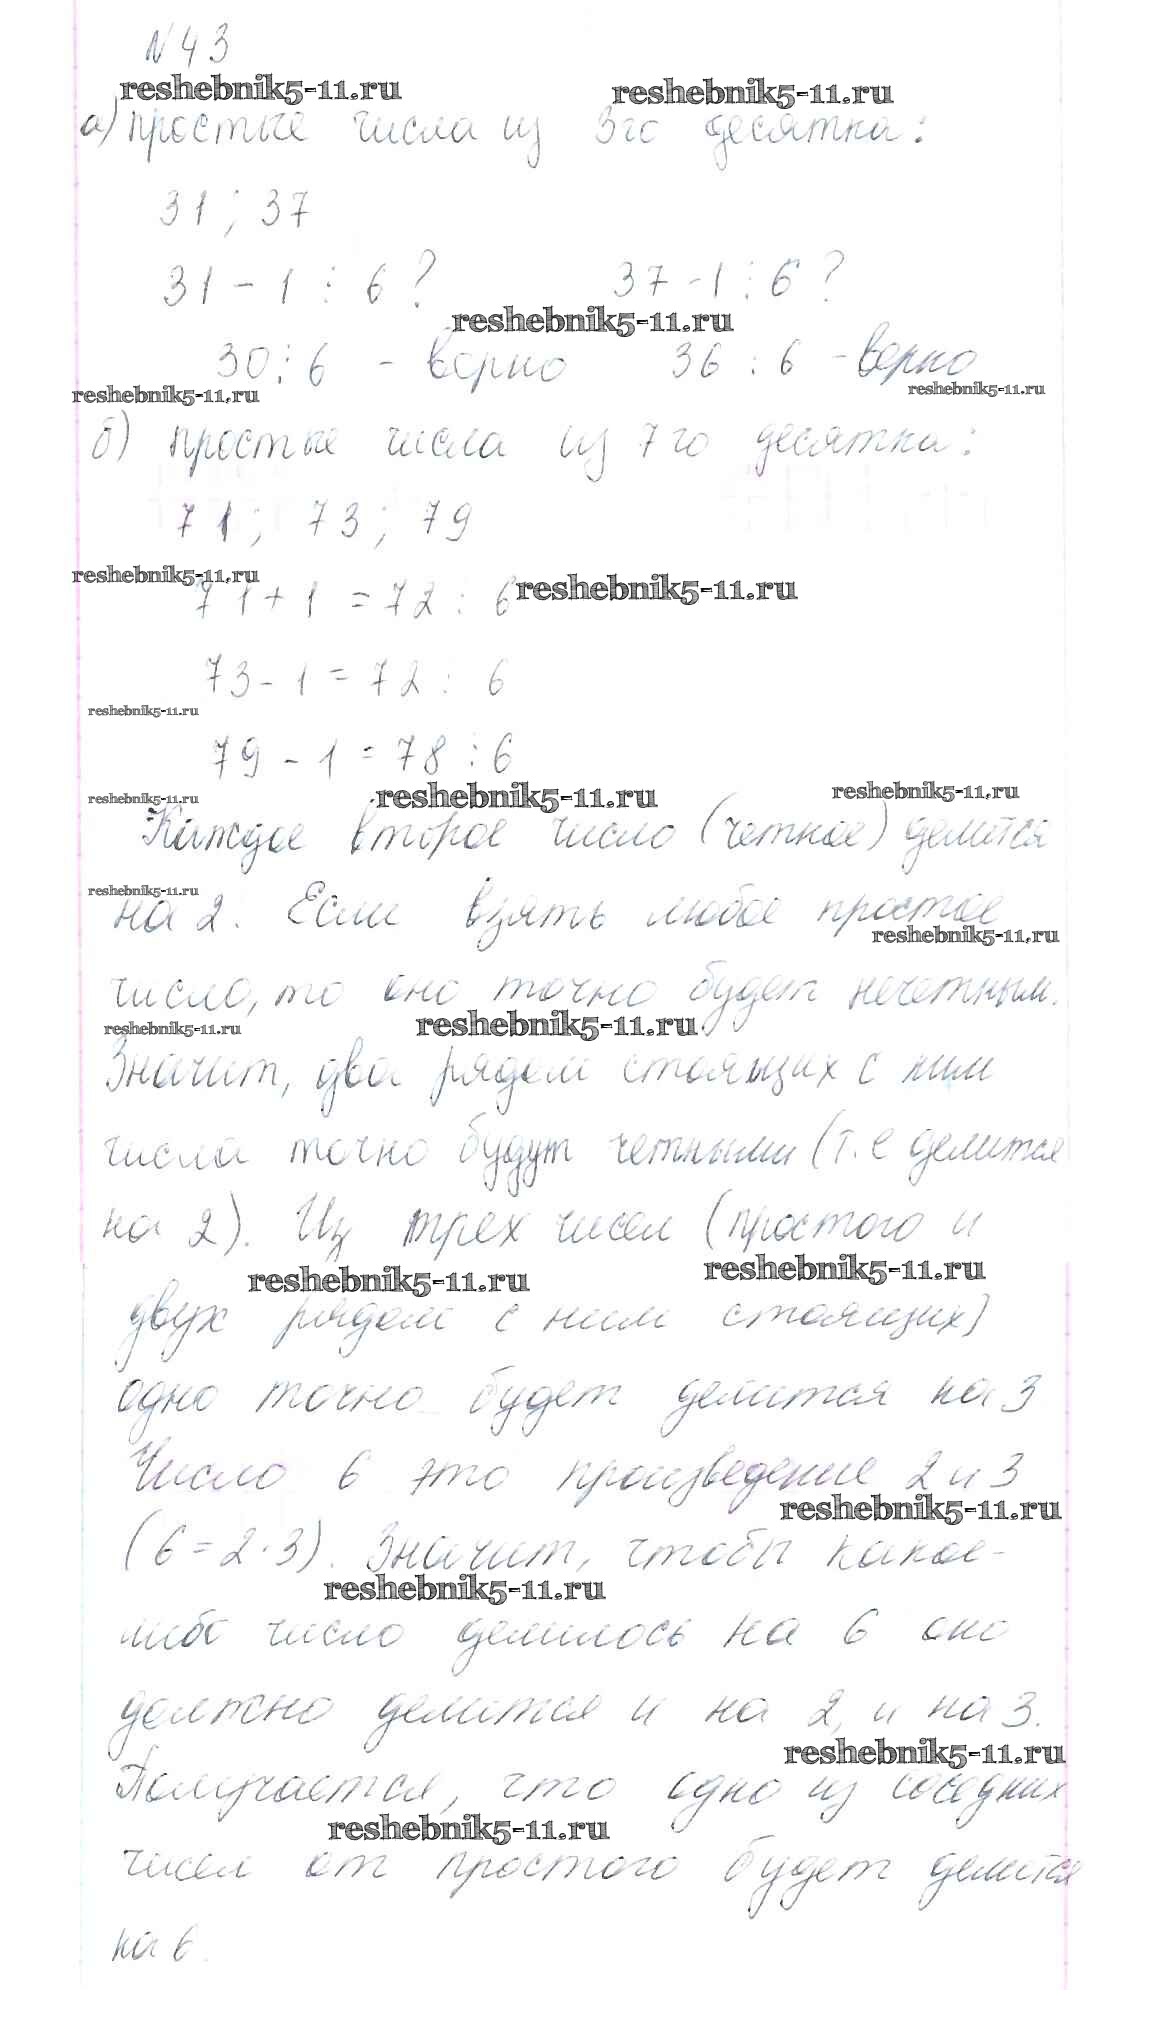 N43
reshebnik5-11.ru reshebnik5-11.ru
а) простые числа из 3го десятка:
31; 37
31 - 1 ⋮ 6? 37 - 1 ⋮ 6?
reshebnik5-11.ru
30 ⋮ 6 - верно 36 : 6 - верно
reshebnik5-11.ru reshebnik5-11.ru
б) простые числа из 7го десятка:
71; 73; 79
reshebnik5-11.ru reshebnik5-11.ru
71 + 1 = 72 : 6
73 - 1 = 72 : 6
reshebnik5-11.ru
79 - 1 = 78 ⋮ 6
reshebnik5-11.ru reshebnik5-11.ru reshebnik5-11.ru
Каждое второе число (четное) делится
reshebnik5-11.ru
на 2. Если взять любое простое
reshebnik5-11.ru
число, то оно точно будет нечетным.
reshebnik5-11.ru reshebnik5-11.ru
Значит, два рядом стоящих с ним
числа точно будут четными (т.е делится
на 2). Из трех чисел (простого и
reshebnik5-11.ru reshebnik5-11.ru
двух рядом с ним стоящих)
одно точно будет делится на 3
Число 6 это произведение 2 и 3
reshebnik5-11.ru
(6 = 2·3). Значит, чтобы какое-
reshebnik5-11.ru
либо число делилось на 6 оно
должно делится и на 2, и на 3.
reshebnik5-11.ru
Получается, что одно из соседних
reshebnik5-11.ru
чисел от простого будет делится
на 6.